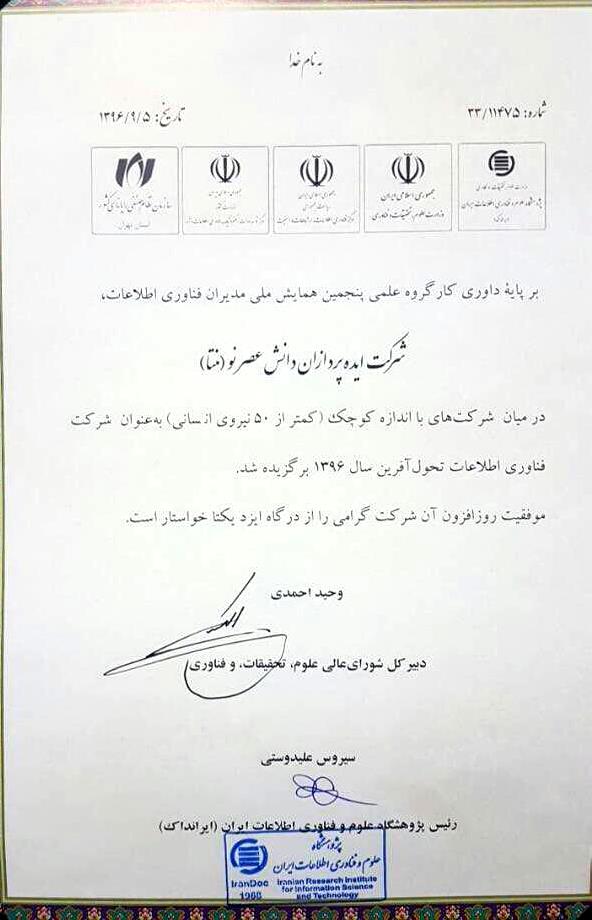 به نام خدا
شماره: ۳۳/۱۱۴۷۵
تاریخ: ۱۳۹۶/۹/۵
وزارت علوم، تحقیقات و فناوری
پژوهشگاه علوم و فناوری اطلاعات ایران
جمهوری اسلامی ایران
وزارت علوم، تحقیقات و فناوری
جمهوری اسلامی ایران
ریاست جمهوری
جمهوری اسلامی ایران
وزارت کشور
سازمان نظام صنفی رایانه‌ای کشور
استان تهران
بر پایۀ داوری کارگروه علمی پنجمین همایش ملی مدیران فناوری اطلاعات،
شرکت ایده پردازان دانش عصر نو (ننتا)
در میان شرکت‌های با اندازه کوچک (کمتر از ۵۰ نیروی انسانی) به‌عنوان شرکت
فناوری اطلاعات تحول‌آفرین سال ۱۳۹۶ برگزیده شد.
موفقیت روزافزون آن شرکت گرامی را از درگاه ایزد یکتا خواستار است.
وحید احمدی
دبیر کل شورای‌عالی علوم، تحقیقات، و فناوری
سیروس علیدوستی
رئیس پژوهشگاه علوم و فناوری اطلاعات ایران (ایرانداک)
پژوهشگاه
علوم و فناوری اطلاعات ایران
IranDoc
1968
Iranian Research Institute
for Information Science
and Technology